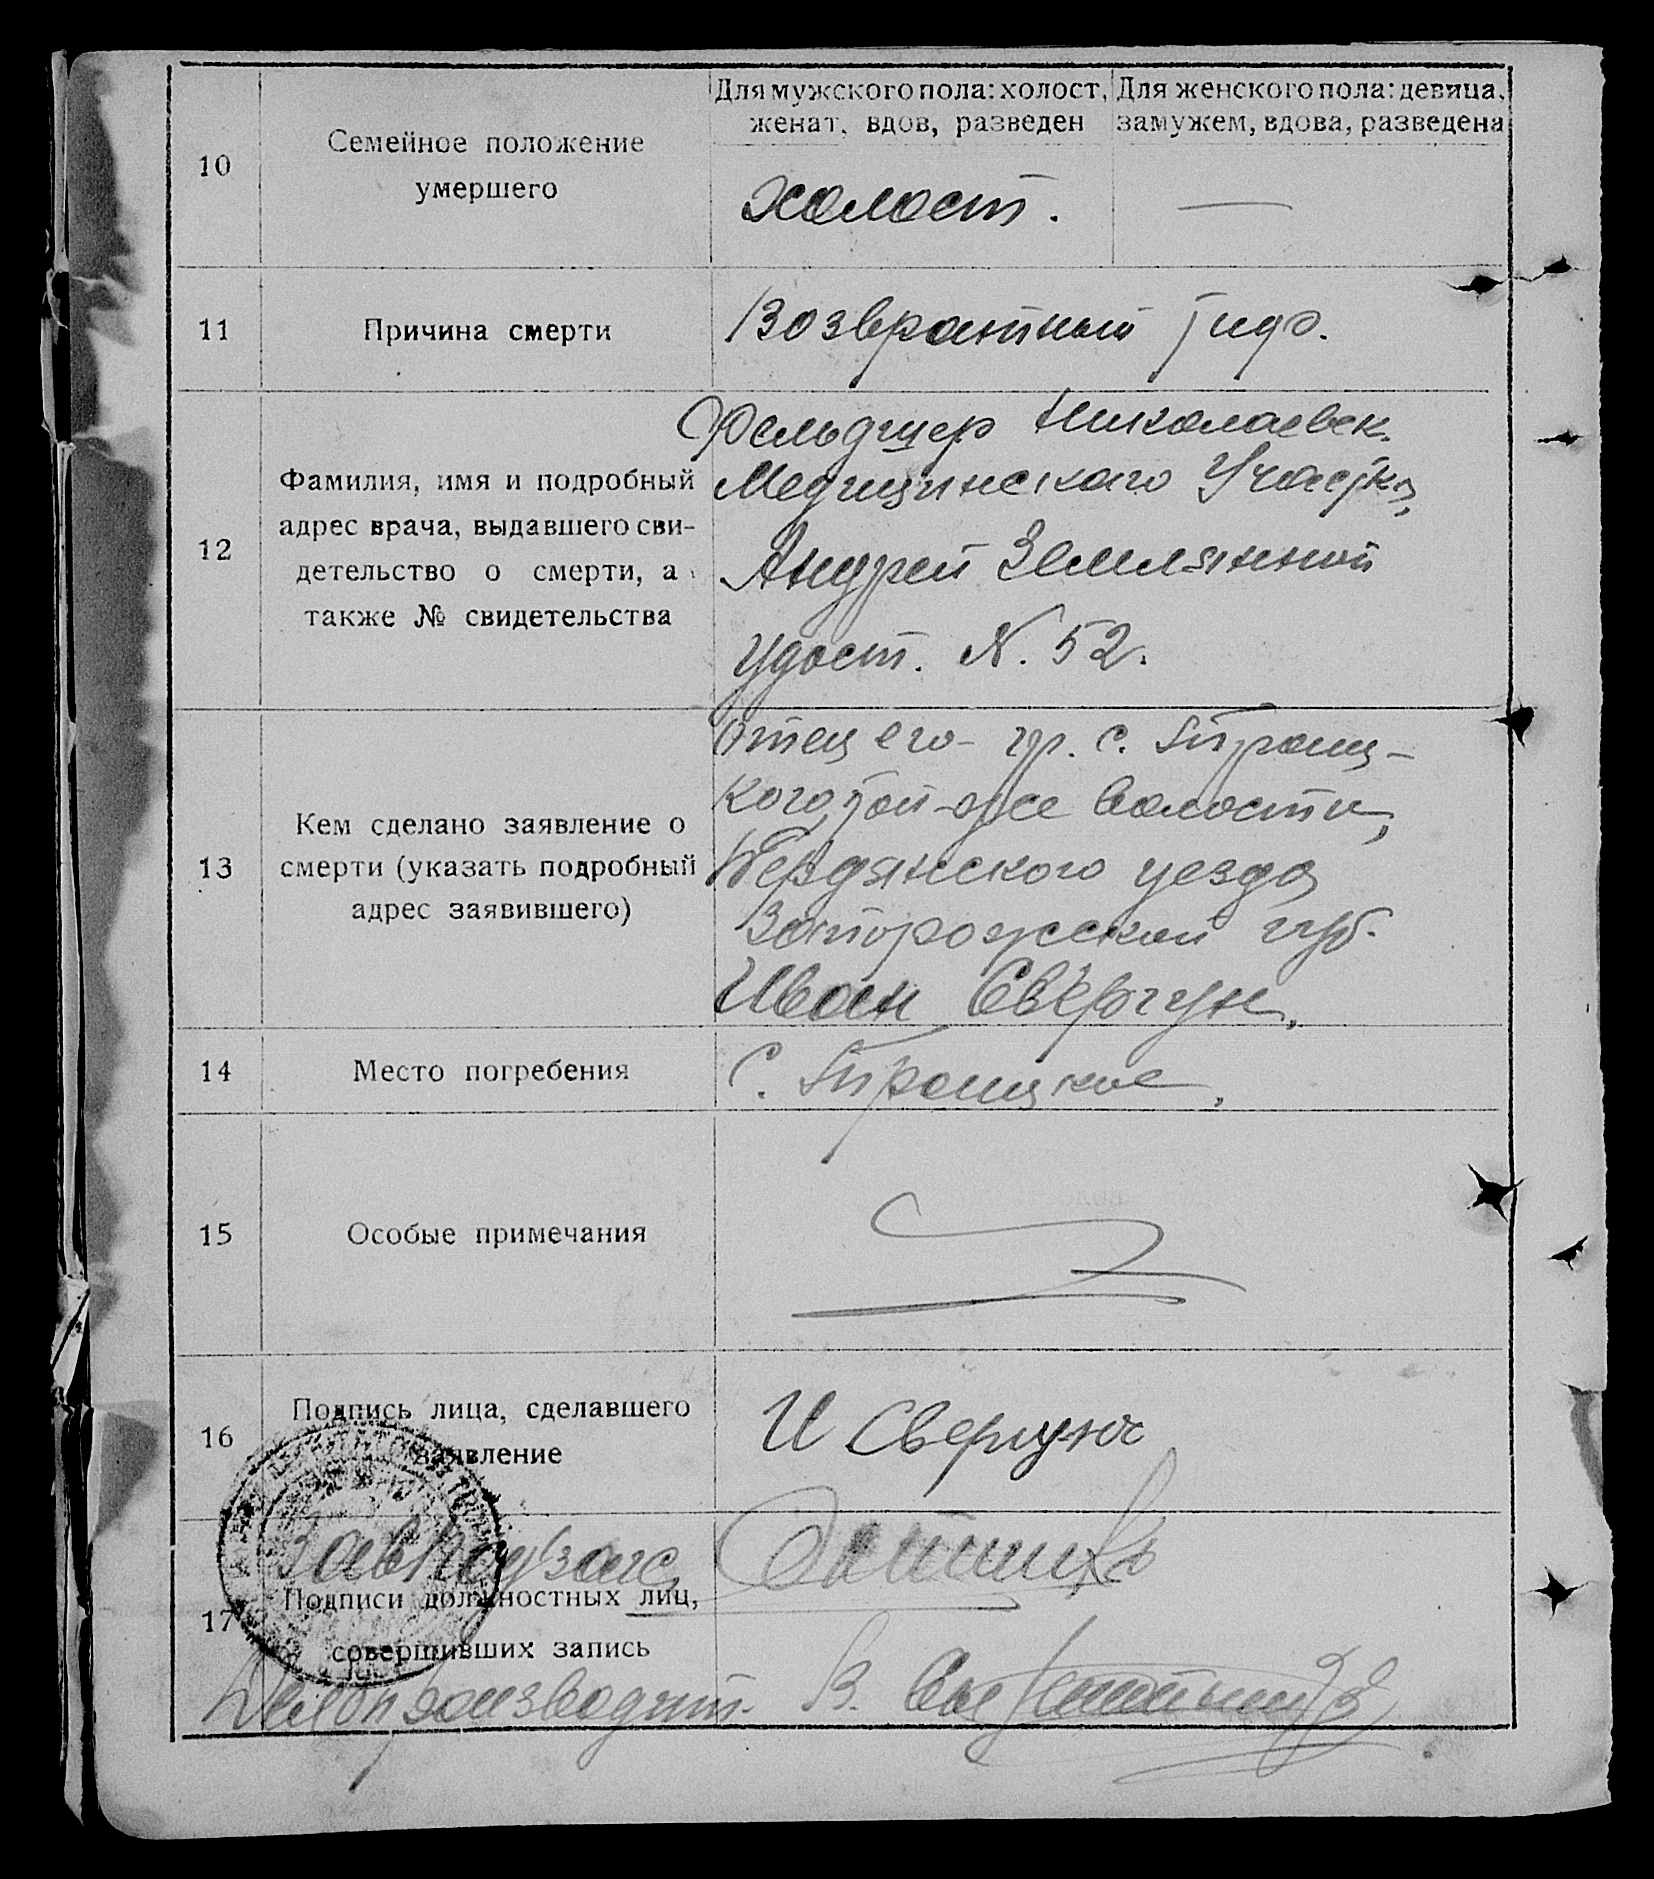 Для мужского пола: холост, женат, вдов, разведен
Для женского пола: девица, замужем, вдова, разведена
10
Семейное положение
умершего
Холост.
—
11
Причина смерти
Возвратный тиф.
12
Фамилия, имя и подробный
адрес врача, выдавшего сви-
детельство о смерти, а
также № свидетельства
Фельдшер Николаевск.
Медицинского Участка,
Андрей Землянной
удост. N. 52.
13
Кем сделано заявление о
смерти (указать подробный
адрес заявившего)
Отец его - гр. с. Троиц-
кого, той-же волости,
Бердянского уезда
Запорожской губ.
Иван Свергун.
14
Место погребения
С. Троицкое,
15
Особые примечания
16
Подпись лица, сделавшего
заявление
И Свергун
17
ЗавПодзагс
Подписи должностных лиц,
совершивших запись
Делопроизводит. В.